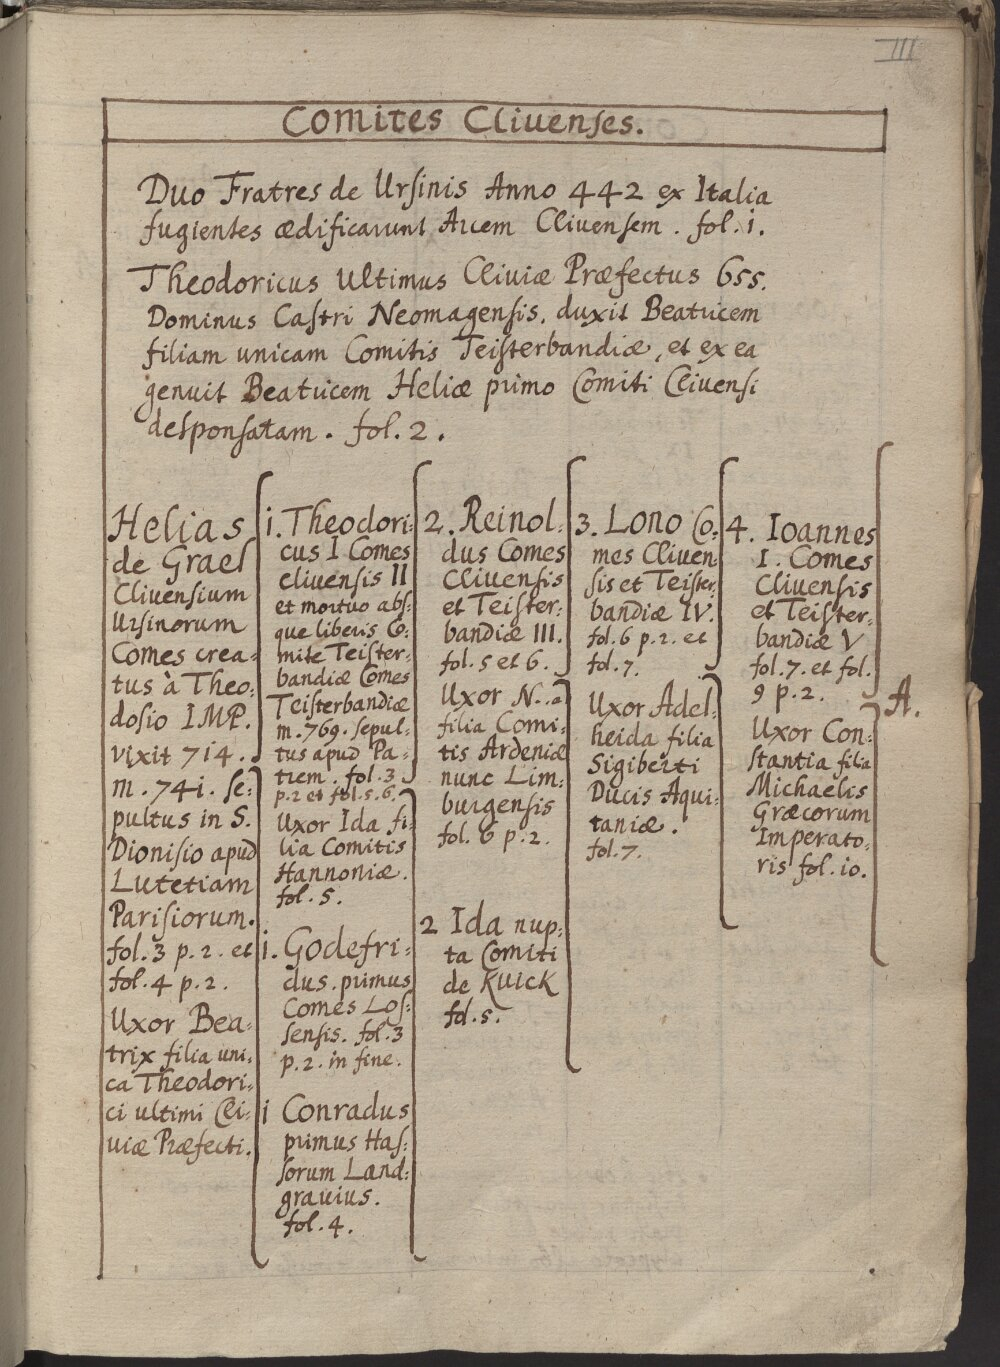 III
Comites Cliuenses.
Duo Fratres de Ursinis Anno 442 ex Italia
fugientes ædificarunt Arcem Cliuensem. fol. i.
Theodoricus Ultimus Cliuiæ Præfectus 655.
Dominus Castri Neomagensis, duxit Beatricem
filiam unicam Comitis Teisterbandiæ, et ex ea
genuit Beatricem Heliæ primo Comiti Cliuensi
desponsatam. fol. 2.
Helias
de Grael
Cliuensium
Ursinorum
Comes crea-
tus à Theo:
dosio IMP.
vixit 714.
m. 741. se:
pultus in S.
Dionisio apud
Lutetiam
Parisiorum.
fol. 3 p. 2. et
fol. 4 p. 2.
Uxor Bea:
trix filia uni:
ca Theodori:
ci ultimi Cli:
uiæ Præfecti.
i. Theodori:
cus I Comes
cliuensis II
et mortuo abs:
que liberis Co:
mite Teister:
bandiæ Comes
Teisterbandiæ
m. 769. sepul:
tus apud Pa:
trem. fol. 3
p. 2 et fol. 5. 6.
Uxor Ida fi:
lia Comitis
Hannoniæ.
fol. 5.
i. Godefri:
dus. primus
Comes Los:
sensis. fol. 3
p. 2. in fine.
i Conradus
primus Has:
sorum Land:
grauius.
fol. 4.
2. Reinol:
dus Comes
Cliuensis
et Teister:
bandiæ III.
fol. 5 et 6.
Uxor N..a
filia Comi:
tis Ardeniæ
nunc Lim:
burgensis
fol. 6 p. 2.
2 Ida nup:
ta Comiti
de KUICK
fol. 5.
3. Lono Co:
mes Cliuen
sis et Teister:
bandiæ IV.
fol. 6 p. 2. et
fol. 7.
Uxor Adel:
heida filia
Sigiberti
Ducis Aqui:
taniæ.
fol. 7.
4. Ioannes
I. Comes
Cliuensis
et Teister:
bandiæ V
fol. 7. et fol.
9 p. 2.
Uxor Con:
stantia filia
Michaelis
Græcorum
Imperato:
ris fol. io.
A.